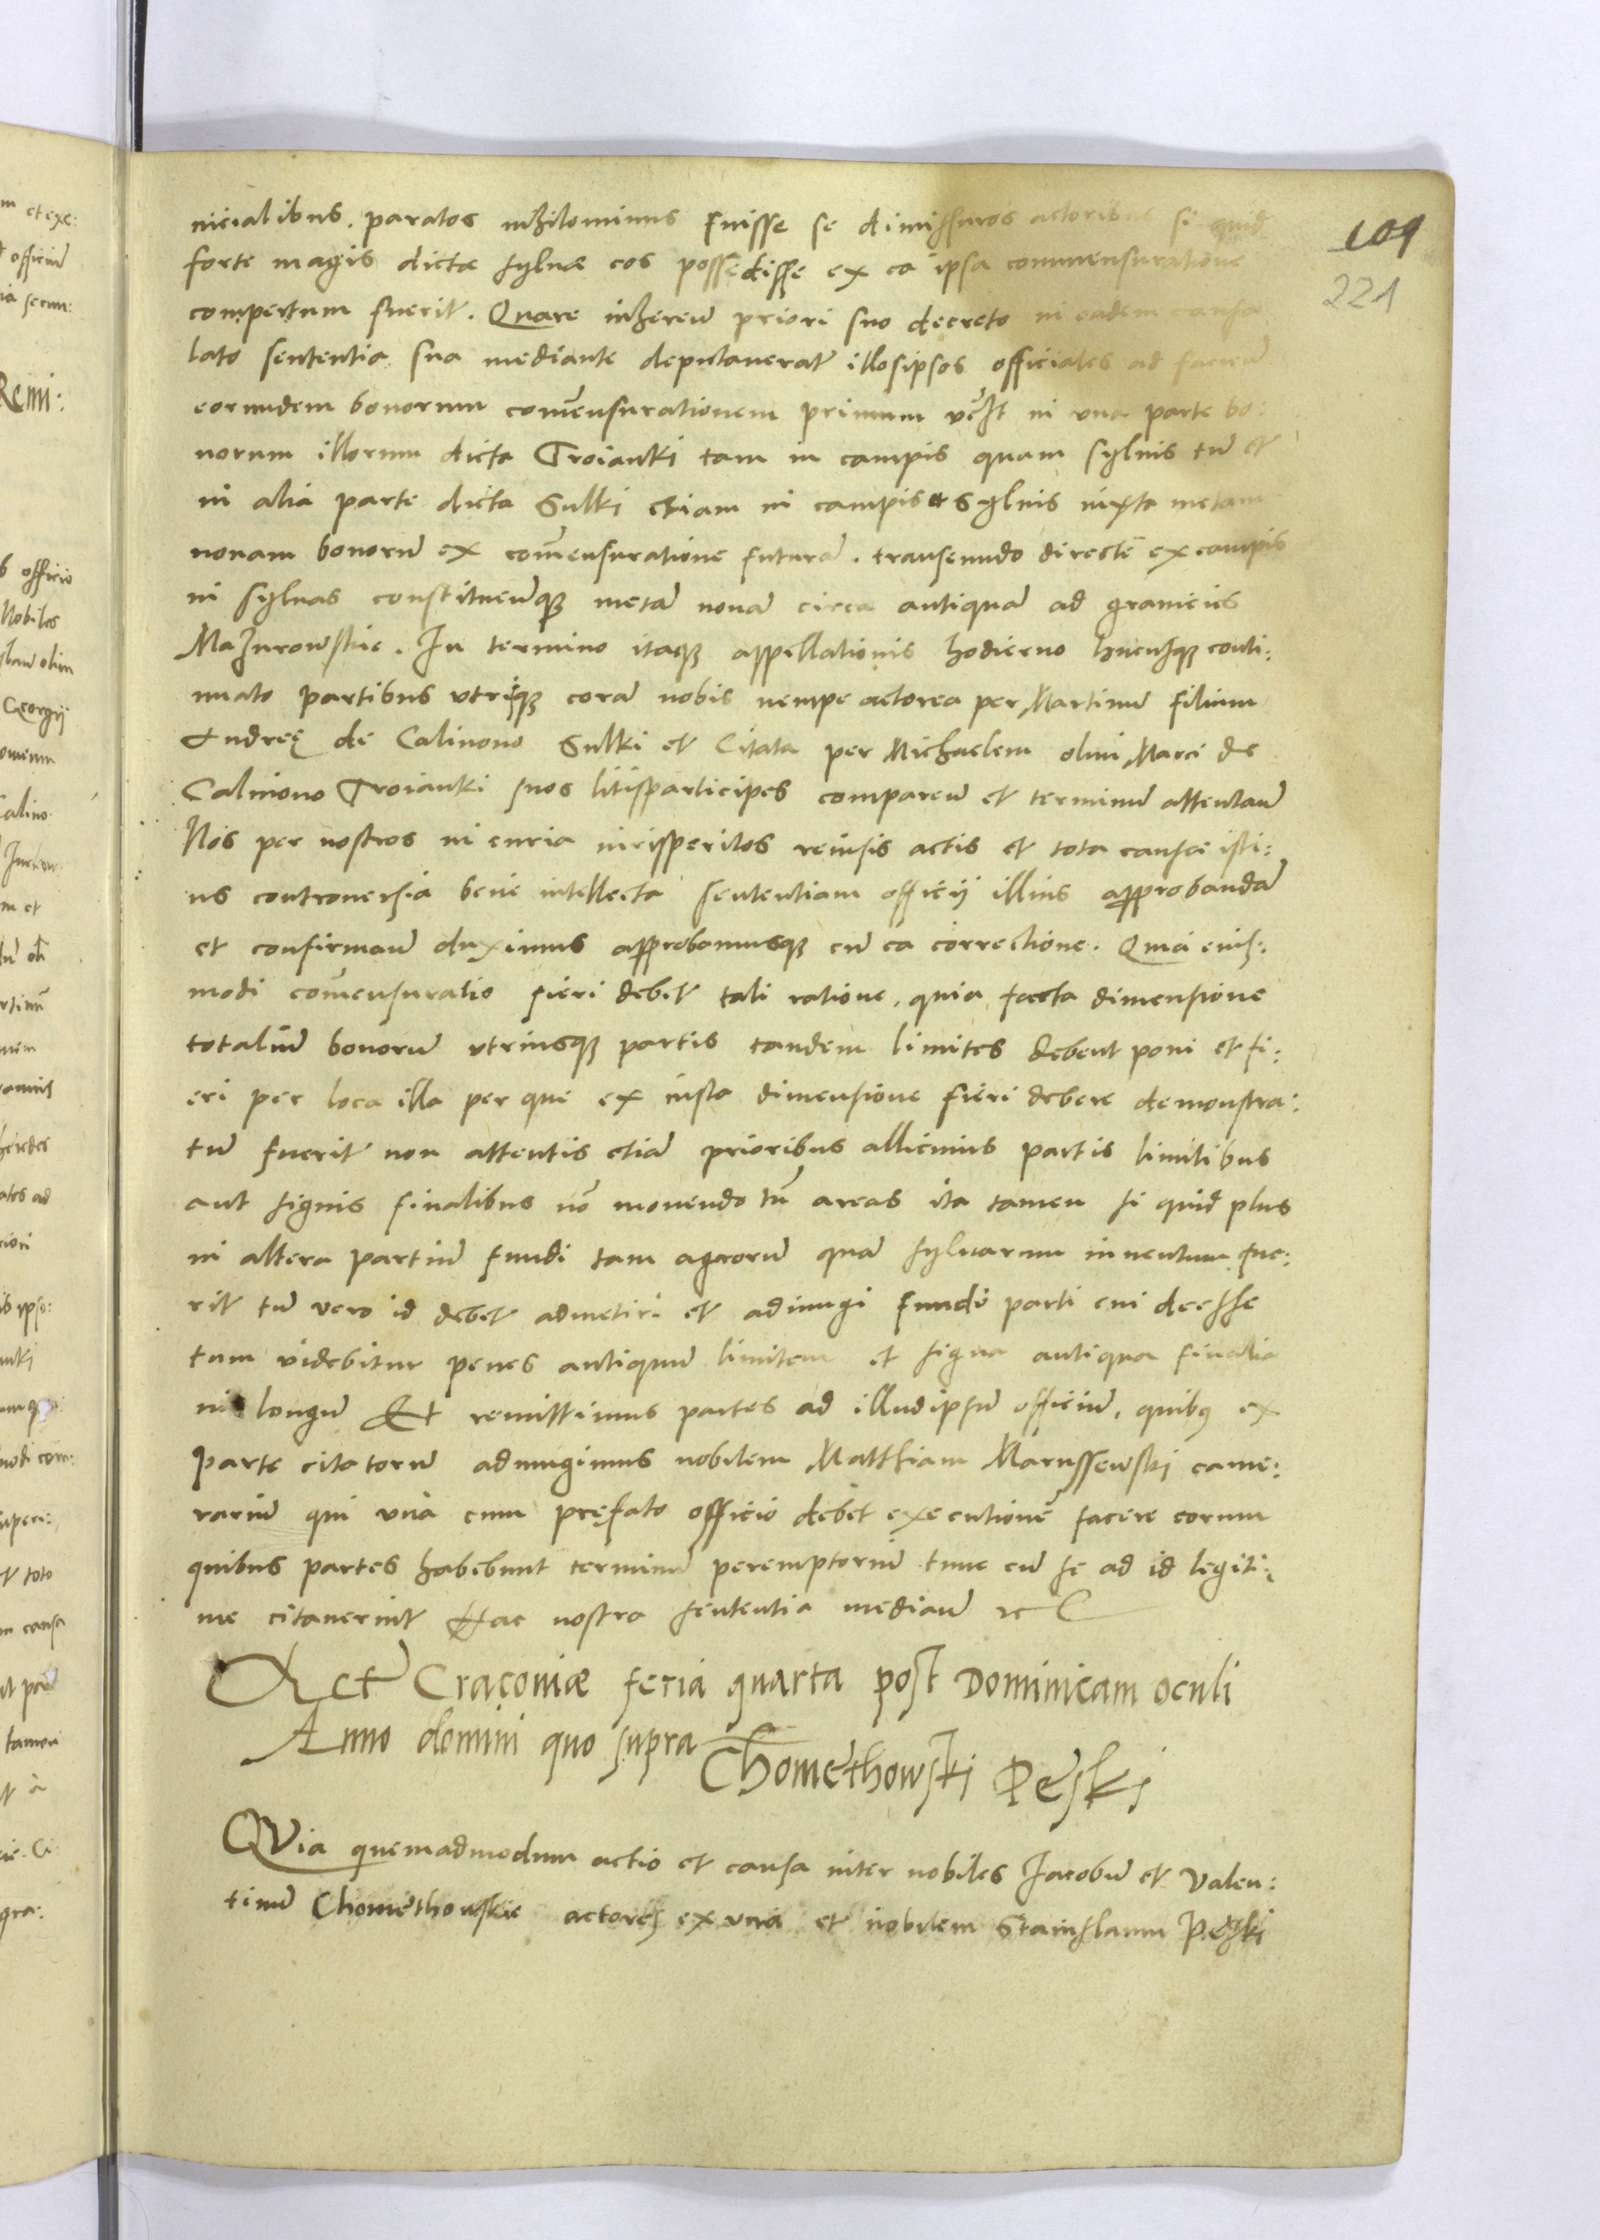 109
221
nicialibus. paratos nihilominus fuisse se dimissuros actoribus si quid
forte magis dictae sylvae eos possedisse ex ea ipsa commensuratione
compertum fuerit. Quare inhereñ priori suo decreto in eadem causa
lato sententia sua mediante deputaverat illosipsos officiales ad facieñ
eorundem bonorum com̃ensurationem primum vcꝫlt in una parte bo:
norum illorum dicta Troianki tam in campis quam sylvis tū et
in alia parte dicta Sulki etiam in campis et Sylvis iuxta metam
novam bonorū ex com̃ensuratione futurā. transeundo directe ex campis
in sylvas constitueñqꝫ metā novā circa antiquā ad granicies
Mazurowskie. In termino itaqꝫ appellationis hodierno hucusqꝫ conti:
nuato partibus utrisqꝫ corā nobis nempe actorea per Martinū filium
Andreę de Calinowo Sulki et Citata per Michaelem olim Marci de
Calinowo Troianki suos litisparticipes compareñ et terminū attentañ
Nos per nostros in curia iurisperitos revisis actis et tota causae isti:
us controversia bene intellecta sententiam officij illius approbandā
et confirmañ duximus approbamusqꝫ cū ea correctione. Quia eius:
modi com̃ensuratio fieri debet tali ratione, quia facta dimensione
totaliū bonorū utriusqꝫ partis tandem limites debent poni et fi:
eri per loca illa per que ex iusta dimensione fieri debere demonstra:
tū fuerit non attentis etiā prioribus allicuius partis limitibus
aut signis finalibus nō movendo tm̄ areas ita tamen si quid plus
in altera partiū fundi tam agrorū quā sylvarum inventum fue:
rit tū vero id debet admetiri et adiungi fundi parti cui deesse
tum videbitur penes antiquū limitem et signa antiqua finalia
in longū Et remittimus partes ad illudipsū officiū, quibꝫ ex
parte citatorū adiungimus nobilem Matthiam Marussewski came:
rariū qui una cum pręfato officio debet executionē facere eorum
quibus partes habebunt terminū peremptoriū tunc cū se ad id legiti:
me citaverint Hac nostra sententia mediañ ꝛc
Act Cracoviae feria quarta post Dominicam oculi
Anno domini quo supra
Chomethowski Peski
QVia quemadmodum actio et causa inter nobiles Jacobū et Valen:
tinū Chomethowskie actores ex una et nobilem Stanislaum Peski